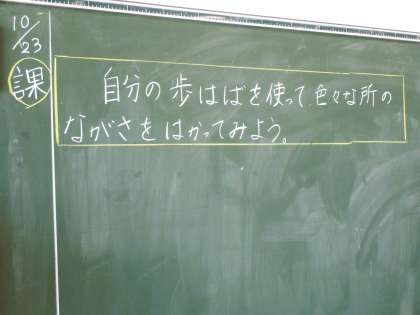 10/23
課
自分の歩はばを使って、色々な所の
ながさをはかってみよう。